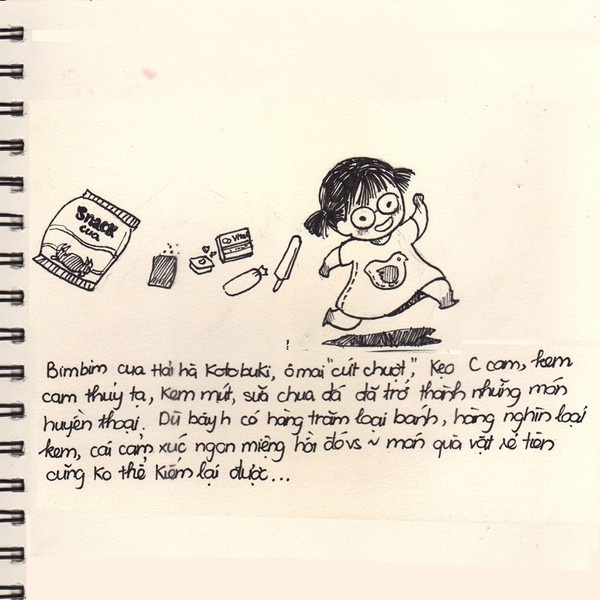 Snack
cua
Co Vita
Bimbim cua Hải hà Kotobuki, ô mai "cứt chuột", Kẹo C cam, kem
cam thuỷ tạ, kem mút, sữa chua đá đã trở thành những món
huyền thoại. Dù bâyh có hàng trăm loại bánh, hàng nghìn loại
kem, cái cảm xúc ngon miệng hồi đó vs ~ món quà vặt rẻ tiền
cũng ko thể kiếm lại được...